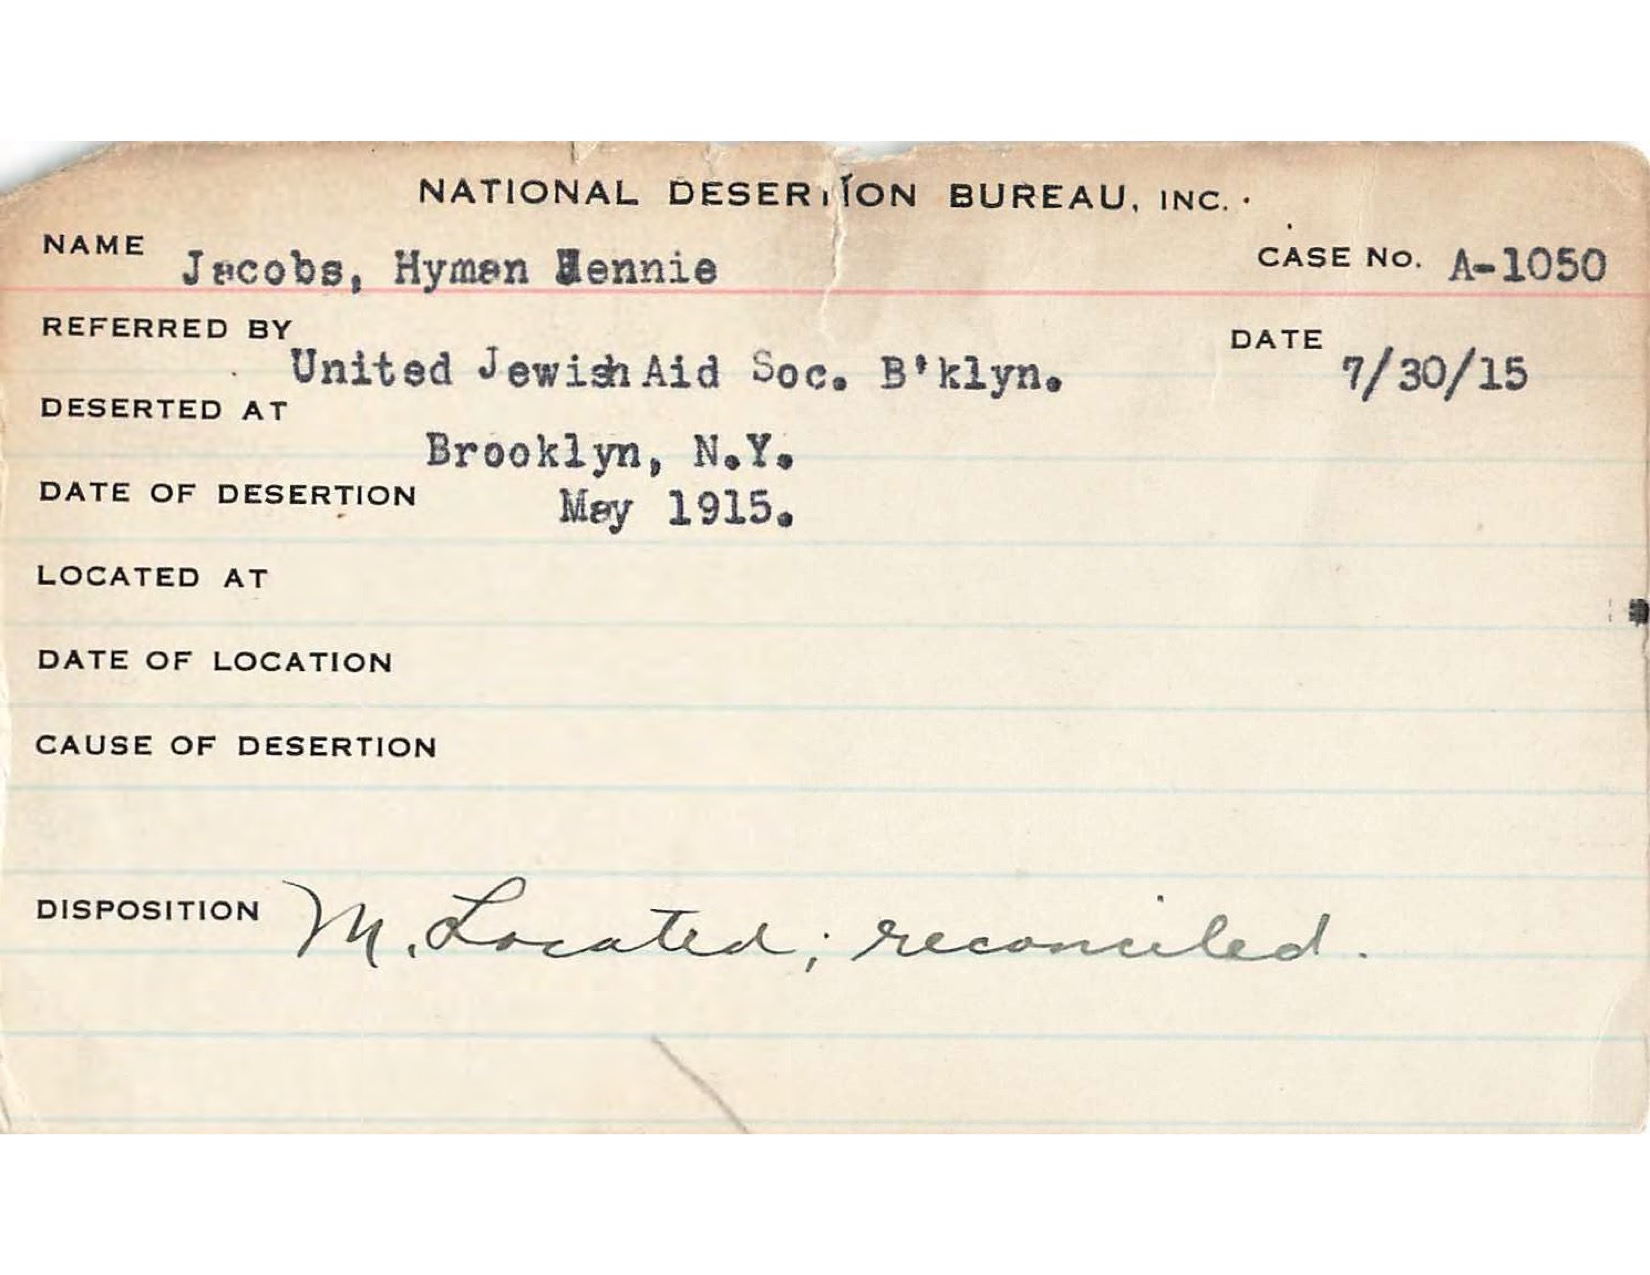 NATIONAL DESERTION BUREAU, INC.
NAME Jacobs, Hyman Hennie CASE NO. A-1050
REFERRED BY United Jewish Aid Soc. B'klyn. DATE 7/30/15
DESERTED AT Brooklyn, N.Y.
DATE OF DESERTION May 1915.
LOCATED AT
DATE OF LOCATION
CAUSE OF DESERTION
DISPOSITION M. Located; reconciled.